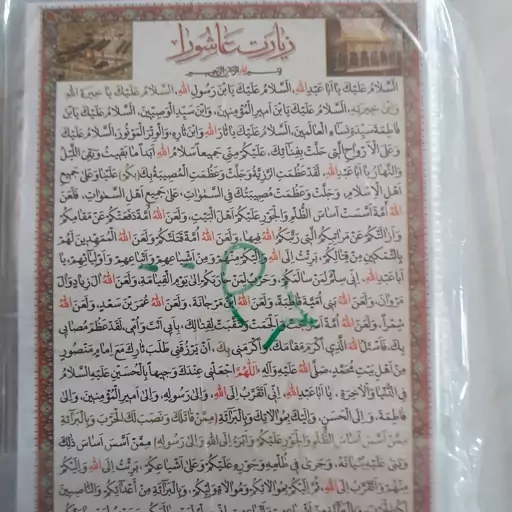 زیارت عاشورا
بسم الله الرحمن الرحیم
اَلسَّلامُ عَلَيْكَ يا اَبا عَبْدِاللهِ، اَلسَّلامُ عَلَيْكَ يَا بْنَ رَسُولِ اللهِ، اَلسَّلامُ عَلَيْكَ يا خِيَرَةَ اللهِ
وَابْنَ خِيَرَتِهِ، اَلسَّلامُ عَلَيْكَ يَا بْنَ اَميرِ الْمُؤْمِنينَ، وَابْنَ سَيِّدِ الْوَصِيّينَ، اَلسَّلامُ عَلَيْكَ يَا بْنَ
فاطِمَةَ سَيِّدَةِ نِساءِ الْعالَمينَ، اَلسَّلامُ عَلَيْكَ يا ثارَ اللهِ وَابْنَ ثارِهِ، وَالْوِتْرَ الْمَوْتُورَ، اَلسَّلامُ عَلَيْكَ
وَعَلَى الْاَرْواحِ الَّتي حَلَّتْ بِفِنائِكَ، عَلَيْكُمْ مِنّي جَميعاً سَلامُ اللهِ اَبَداً ما بَقيتُ وَبَقِيَ اللَّيْلُ
وَالنَّهارُ، يا اَبا عَبْدِاللهِ، لَقَدْ عَظُمَتِ الرَّزِيَّةُ وَجَلَّتْ وَعَظُمَتِ الْمُصيبَةُ بِكَ (بِكُمْ) عَلَيْنا وَعَلى جَميعِ
اَهْلِ الْاِسْلامِ، وَجَلَّتْ وَعَظُمَتْ مُصيبَتُكَ فِي السَّمواتِ، عَلى جَميعِ اَهْلِ السَّمواتِ، فَلَعَنَ
اللهُ اُمَّةً اَسَّسَتْ اَساسَ الظُّلْمِ وَالْجَوْرِ عَلَيْكُمْ اَهْلَ الْبَيْتِ، وَلَعَنَ اللهُ اُمَّةً دَفَعَتْكُمْ عَنْ مَقامِكُمْ
وَاَزالَتْكُمْ عَنْ مَراتِبِكُمُ الَّتي رَتَّبَكُمُ اللهُ فيها، وَلَعَنَ اللهُ اُمَّةً قَتَلَتْكُمْ وَلَعَنَ اللهُ الْمُمَهِّدينَ لَهُمْ
بِالتَّمْكينِ مِنْ قِتالِكُمْ، بَرِئْتُ اِلَى اللهِ وَاِلَيْكُمْ مِنْهُمْ وَمِنْ اَشْياعِهِمْ وَاَتْباعِهِمْ وَاَوْلِيائِهِمْ، يا
اَبا عَبْدِاللهِ، اِنّي سِلْمٌ لِمَنْ سالَمَكُمْ، وَحَرْبٌ لِمَنْ حارَبَكُمْ اِلى يَوْمِ الْقِيامَةِ، وَلَعَنَ اللهُ آلَ زِيادٍ وَآلَ
مَرْوانَ، وَلَعَنَ اللهُ بَني اُمَيَّةَ قاطِبَةً، وَلَعَنَ اللهُ ابْنَ مَرْجانَةَ، وَلَعَنَ اللهُ عُمَرَ بْنَ سَعْدٍ، وَلَعَنَ اللهُ
شِمْراً، وَلَعَنَ اللهُ اُمَّةً اَسْرَجَتْ وَاَلْجَمَتْ وَتَنَقَّبَتْ لِقِتالِكَ، بِاَبي اَنْتَ وَاُمّي، لَقَدْ عَظُمَ مُصابي
بِكَ، فَاَسْئَلُ اللهَ الَّذي اَكْرَمَ مَقامَكَ، وَاَكْرَمَني بِكَ، اَنْ يَرْزُقَني طَلَبَ ثارِكَ مَعَ اِمامٍ مَنْصُورٍ
مِنْ اَهْلِ بَيْتِ مُحَمَّدٍ، صَلَّى اللهُ عَلَيْهِ وَآلِهِ، اَللّهُمَّ اجْعَلْني عِنْدَكَ وَجيهاً بِالْحُسَيْنِ عَلَيْهِ السَّلامُ
فِي الدُّنْيا وَالْاخِرَةِ، يا اَبا عَبْدِاللهِ، اِنّي اَتَقَرَّبُ اِلَى اللهِ، وَاِلى رَسُولِهِ، وَاِلى اَميرِ الْمُؤْمِنينَ، وَاِلى
فاطِمَةَ، وَاِلَى الْحَسَنِ، وَاِلَيْكَ بِمُوالاتِكَ وَبِالْبَرائَةِ (مِمَّنْ قاتَلَكَ وَنَصَبَ لَكَ الْحَرْبَ، وَبِالْبَرائَةِ
مِمَّنْ اَسَّسَ اَساسَ الظُّلْمِ وَالْجَوْرِ عَلَيْكُمْ وَاَبْرَءُ اِلَى اللهِ وَاِلى رَسُولِهِ) مِمَّنْ اَسَّسَ اَساسَ ذلِكَ
وَبَنى عَلَيْهِ بُنْيانَهُ، وَجَرى في ظُلْمِهِ وَجَوْرِهِ عَلَيْكُمْ وَعَلى اَشْياعِكُمْ، بَرِئْتُ اِلَى اللهِ وَاِلَيْكُمْ
مِنْهُمْ، وَاَتَقَرَّبُ اِلَى اللهِ، ثُمَّ اِلَيْكُمْ بِمُوالاتِكُمْ وَمُوالاةِ وَلِيِّكُمْ، وَبِالْبَرائَةِ مِنْ اَعْدائِكُمْ وَالنّاصِبينَ